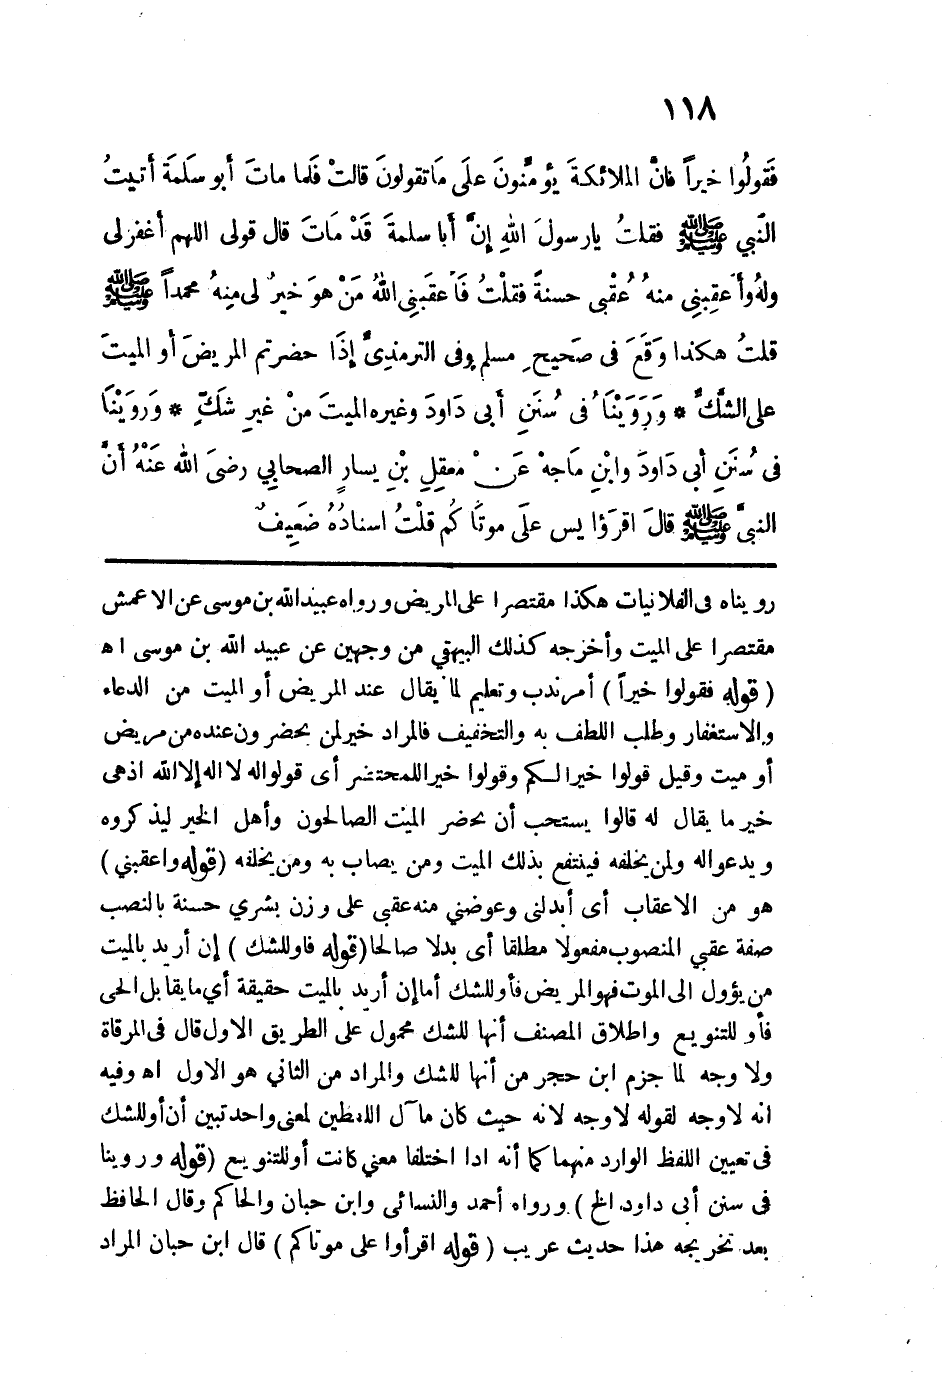 ١١٨
فَقُولُوا خيراً فانَّ الملائكةَ يؤمِّنُونَ علَى مَا تقولونَ قالتْ فَلما ماتَ أبو سَلَمَةَ أتيتُ
النَّبي ﷺ فقلتُ يارسولَ اللهِ إنَّ أَبا سلمةَ قَدْ مَاتَ قال قولى اللهم أغفرلى
ولهُ وأَعقِبنِى منهُ عُقْبى حسنةً فقلْتُ فَأَعقَبنِى اللهُ مَنْ هوَ خيرٌ لى مِنهُ محمداً ﷺ
قلتُ هكذا وَقَعَ فى صَحيحِ مسلم وفى الترمذىِّ إذَا حضرتم المريضَ أو الميتَ
على الشَّكِّ * وَرَوَيْنَا فى سُنَنِ أبى دَاودَ وغيره الميتَ منْ غيرِ شَكٍّ * وَرويْنَا
فى سُنَنِ أبى دَاودَ وابْنِ مَاجهْ عَنْ معقِلِ بْنِ يسارٍ الصحابي رضىَ الله عَنْهُ أَنَّ
النبىَّ ﷺ قالَ اقرَؤا يس علَى موتَاكُم قلْتُ اسنادُهُ ضَعِيفٌ
رويناه فى الغلانيات هكذا مقتصرا على المريض ورواه عبيد الله بن موسى عن الاعمش
مقتصرا على الميت وأخرجه كذلك البيهقي من وجهين عن عبيد الله بن موسى اه
( قوله فقولوا خيراً ) أمر ندب وتعليم لما يقال عند المريض أو الميت من الدعاء
والاستغفار وطلب اللطف به والتخفيف فالمراد خير لمن يحضرون عنده من مريض
أو ميت وقيل قولوا خيرا لكم وقولوا خيرا للمحتضر أى قولواله لا اله إلا الله اذهى
خير ما يقال له قالوا يستحب أن يحضر الميت الصالحون وأهل الخير ليذكروه
ويدعواله ولمن يخلفه فينتفع بذلك الميت ومن يصاب به ومن يخلفه (قوله واعقبني )
هو من الاعقاب أى أبدلنى وعوضني منه عقبى على وزن بشري حسنة بالنصب
صفة عقبي المنصوب مفعولا مطلقا أى بدلا صالحا (قوله فاوللشك ) إن أريد بالميت
من يؤول الى الموت فهو المريض فأوللشك أما إن أريد بالميت حقيقة أي ما يقابل الحى
فأو للتنويع واطلاق المصنف أنها للشك محمول على الطريق الاول قال فى المرقاة
ولا وجه لما جزم ابن حجر من أنها للشك والمراد من الثاني هو الاول اه وفيه
انه لا وجه لقوله لا وجه لانه حيث كان مآل اللفظين لمعنى واحد تبين أن أوللشك
فى تعيين اللفظ الوارد منهما كما أنه اذا اختلفا معني كانت أوللتنويع (قوله وروينا
فى سنن أبى داود الخ ) ورواه أحمد والنسائى وابن حبان والحاكم وقال الحافظ
بعد تخريجه هذا حديث غريب ( قوله اقرأوا على موتاكم ) قال ابن حبان المراد